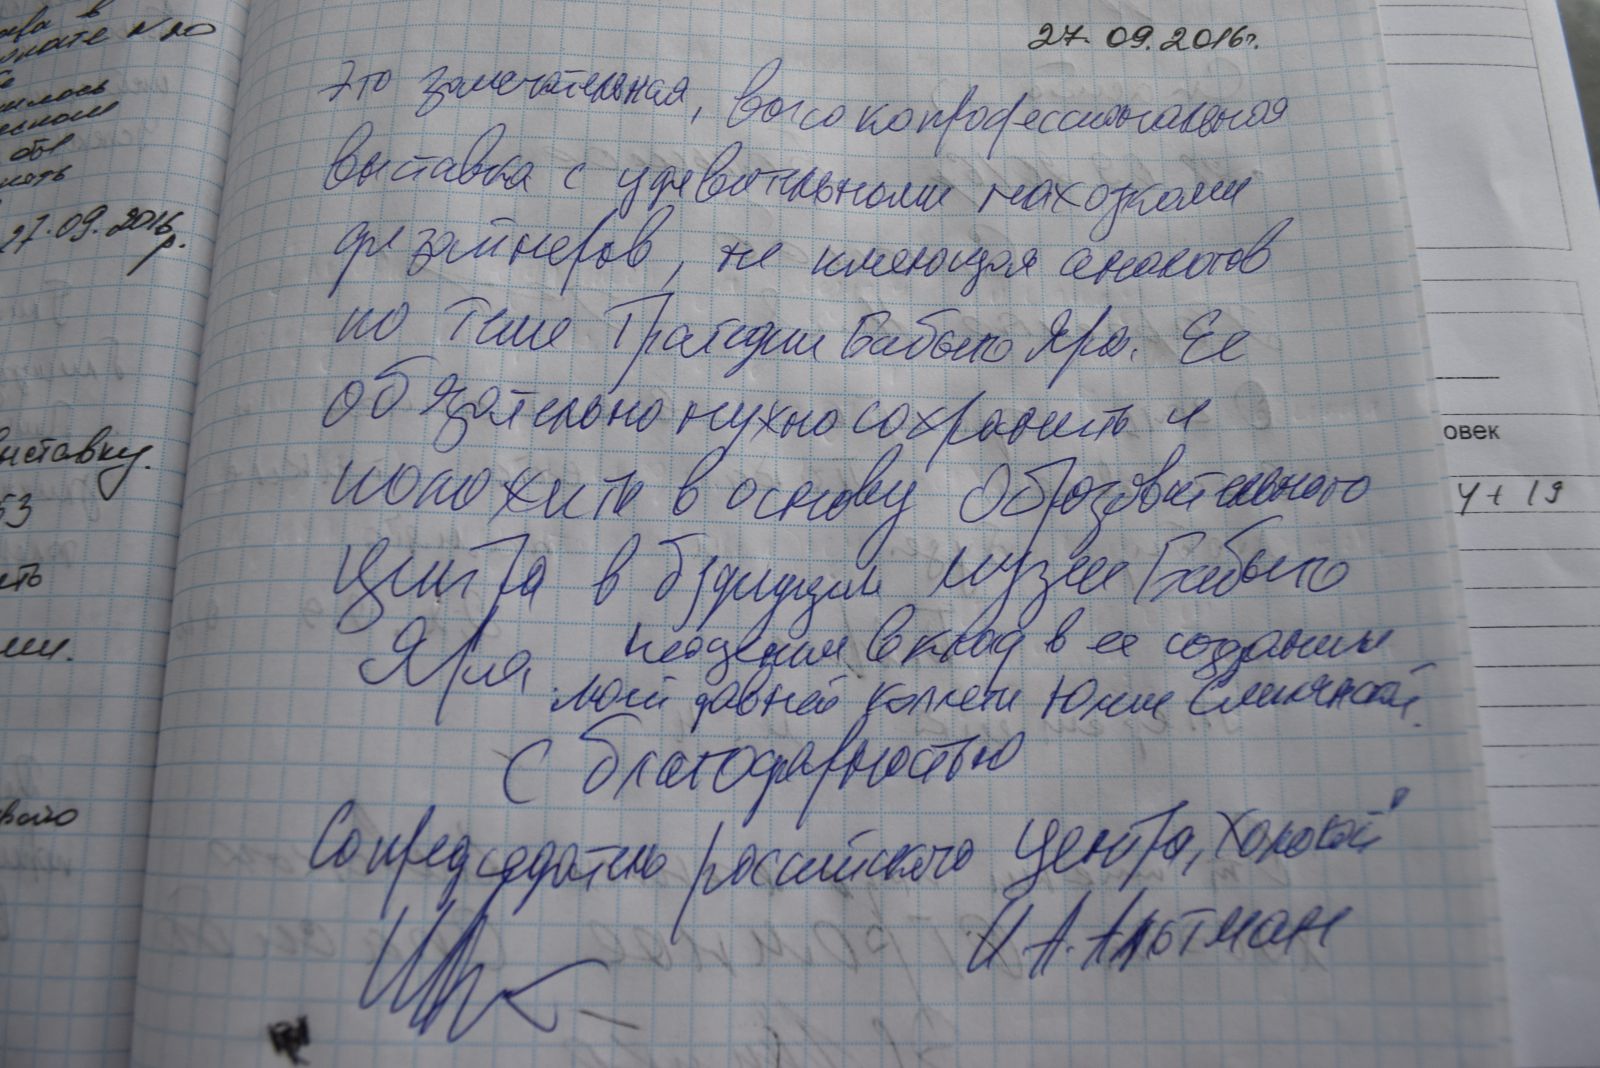 27.09.2016г.
Это замечательная, высокопрофессиональная
выставка с удивительными находками
дизайнеров, не имеющая аналогов
по теме Трагедии Бабьего Яра. Ее
обязательно нужно сохранить и
положить в основу Образовательного
Центра в будущем музее Бабьего
Яра. Неоценим вклад в ее создании
моей давней коллеги Юлии Смилянской.
С благодарностью
Сопредседатель российского Центра „Холокост"
И.А. Альтман
N 20
27.09.2016
р.
выставку.
53
овек
4+19